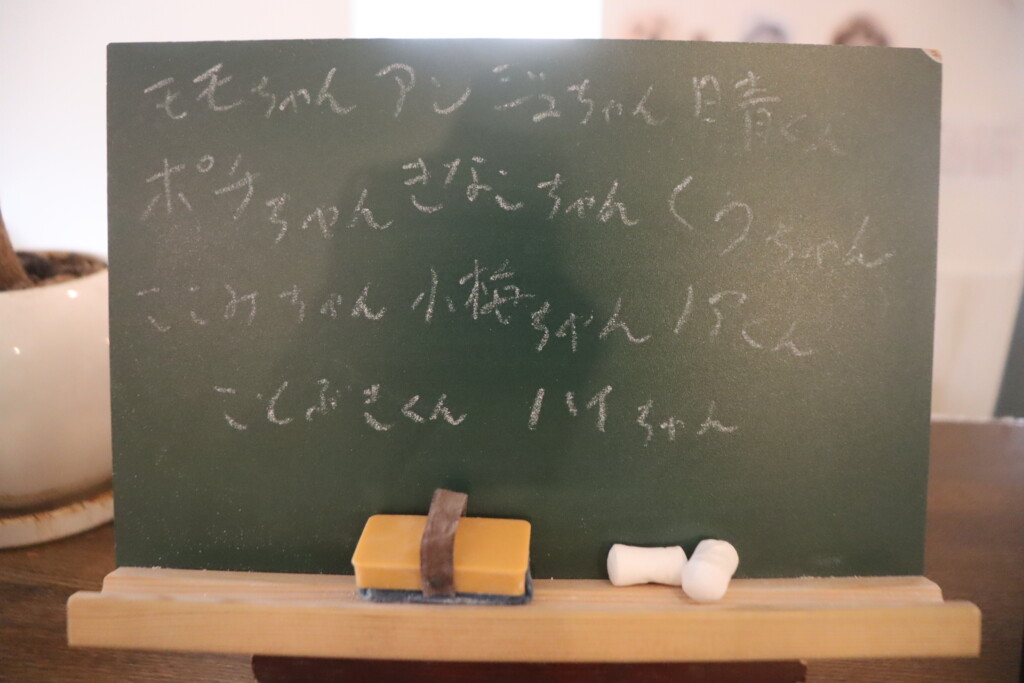 モモちゃん アンジュちゃん 晴くん
ポチちゃん きなこちゃん くうちゃん
ここみちゃん 小梅ちゃん ノアくん
ことぶきくん ハイちゃん